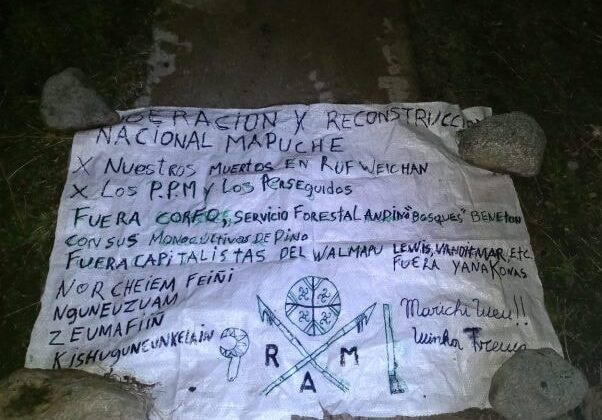 ERACION X RECONSTRUCCION
NACIONAL MAPUCHE
X NUESTROS MUERTOS EN RUF WEICHAN
X LOS P.P.M Y LOS PERSEGUIDOS
FUERA CORFO, SERVICIO FORESTAL ANDINO "BOSQUES" BENETON
CON SUS MONOCULTIVOS DE PINO
FUERA CAPITALISTAS DEL WALMAPU LEWIS, VANDITMAR, ETC.
FUERA YANAKONAS
NOR CHEIEM FEIÑI
NGUNEUZUAM
ZEUMAFIIÑ
KISHUGUNEUNKELAIN
R A M
Marichi Weu!!